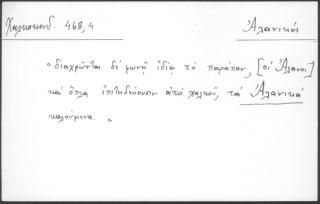 Χαλκοκονδ. 468, 4 Ἀλανικός
"διαχρῶνται δὲ φωνῇ ἰδίᾳ τὸ παράπαν, [οἱ Ἀλανοὶ]
καὶ ὅπλα ἐπιτηδεύουσιν ἀπὸ χαλκοῦ, τὰ Ἀλανικὰ
καλούμενα."